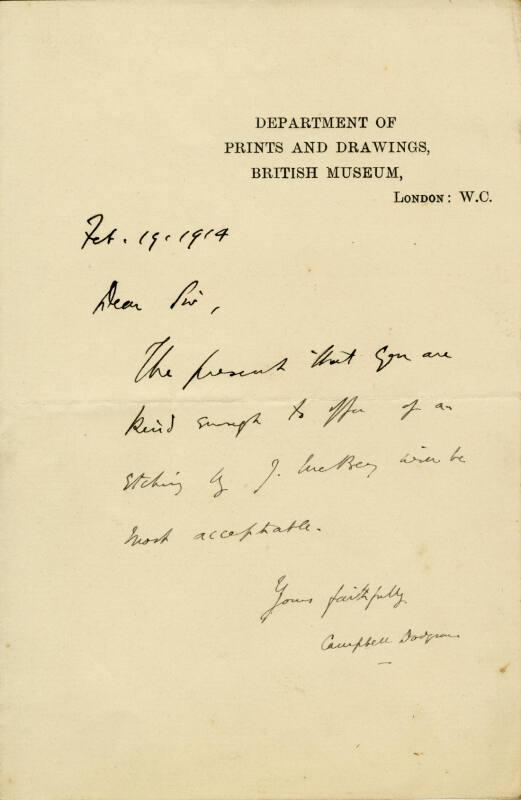 DEPARTMENT OF
PRINTS AND DRAWINGS,
BRITISH MUSEUM,
LONDON: W.C.
Feb. 19. 1914
Dear Sir,
The present that you are
kind enough to offer of an
etching by J. McBey will be
most acceptable.
Yours faithfully
Campbell Dodgson